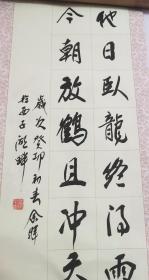 他日卧龍终得雨
今朝放鶴且冲天
歲次癸卯初春余晖
於西子湖畔